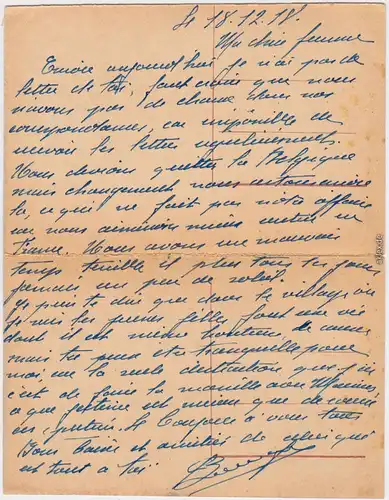 le 18.12.18.
Ma chère femme
Encore aujourd'hui je n'ai pas de
lettre de toi, faut croire que nous
n'avons pas de chance dans nos
correspondances, car impossible de
recevoir les lettres
Nous devions quitter la Belgique
mais changement nous
la, ce qui ne fait pas notre affaire
car nous aimerions mieux entrer en
France. Nous avons un mauvais
temps terrible il pleut tous les jours
jamais un peu de soleil.
Je puis te dire que dans le village où
je suis les jeunes filles font une vie
dont il est même honteux de
mais tu peux être tranquille pour
moi, car la seule distraction que j'ai
c'est de faire la manille avec
ce que j'estime est mieux que de courir
en Bonjour à vous tous
Bons baisers et amitiés de celui qui
est tout à toi.